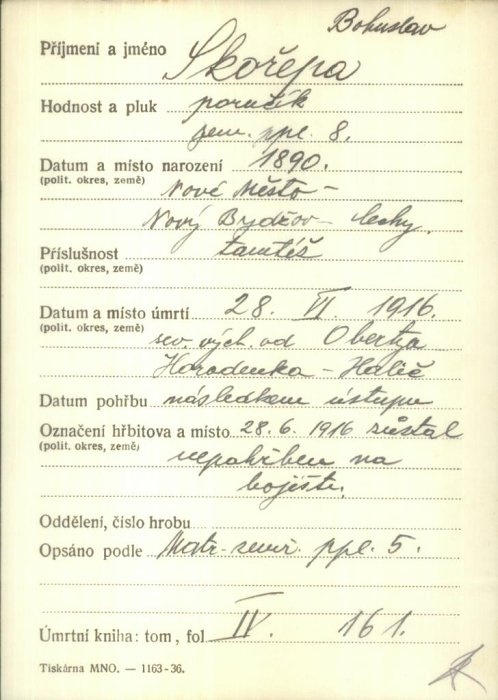 Bohuslav
Příjmení a jméno Skořepa
Hodnost a pluk poručík
zem. ppl. 8.
Datum a místo narození 1890.
(polit. okres, země) Nové Město -
Nový Bydžov - Čechy.
Příslušnost tamtéž
(polit. okres, země)
Datum a místo úmrtí 28. VI. 1916.
(polit. okres, země) sev. vých. od Obertya
Horodenka - Halič
Datum pohřbu následkem ústupu
Označení hřbitova a místo 28.6. 1916 zůstal
(polit. okres, země) nepohřben na
bojišti.
Oddělení, číslo hrobu
Opsáno podle Matr. zemř. ppl. 5.
Úmrtní kniha: tom, fol. IV. 161.
Tiskárna MNO. — 1163-36.